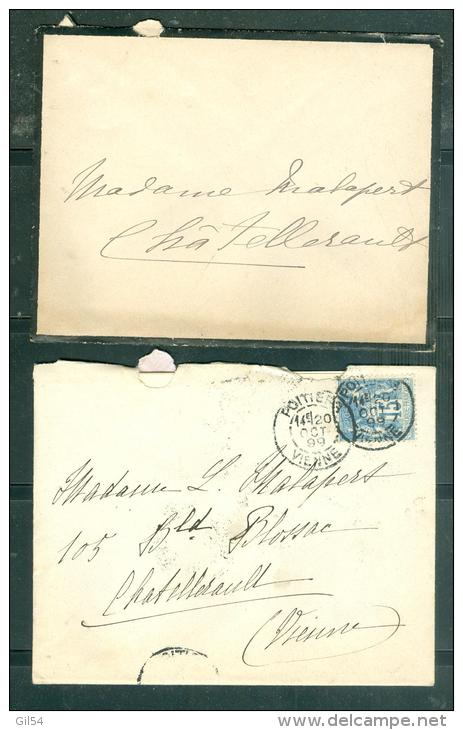 Madame Malapert
Châtellerault
POITIERS
14E 20
OCT
99
VIENNE
POI
14E 20
OCT
99
VIENNE
15
Madame L. Malapert
105 Bld Blossac
Chatellerault
(Vienne)
Gil54
www.delcampe.net